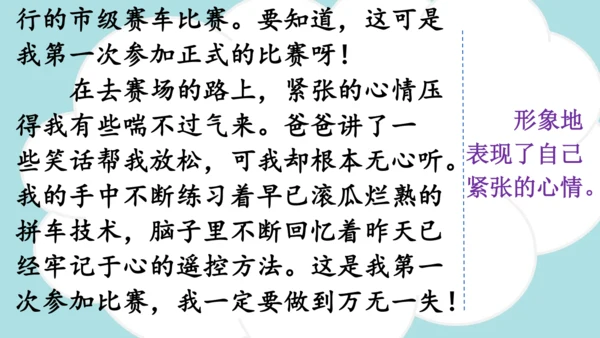 行的市级赛车比赛。要知道，这可是
我第一次参加正式的比赛呀！
在去赛场的路上，紧张的心情压
得我有些喘不过气来。爸爸讲了一
些笑话帮我放松，可我却根本无心听。
我的手中不断练习着早已滚瓜烂熟的
拼车技术，脑子里不断回忆着昨天已
经牢记于心的遥控方法。这是我第一
次参加比赛，我一定要做到万无一失！
形象地
表现了自己
紧张的心情。